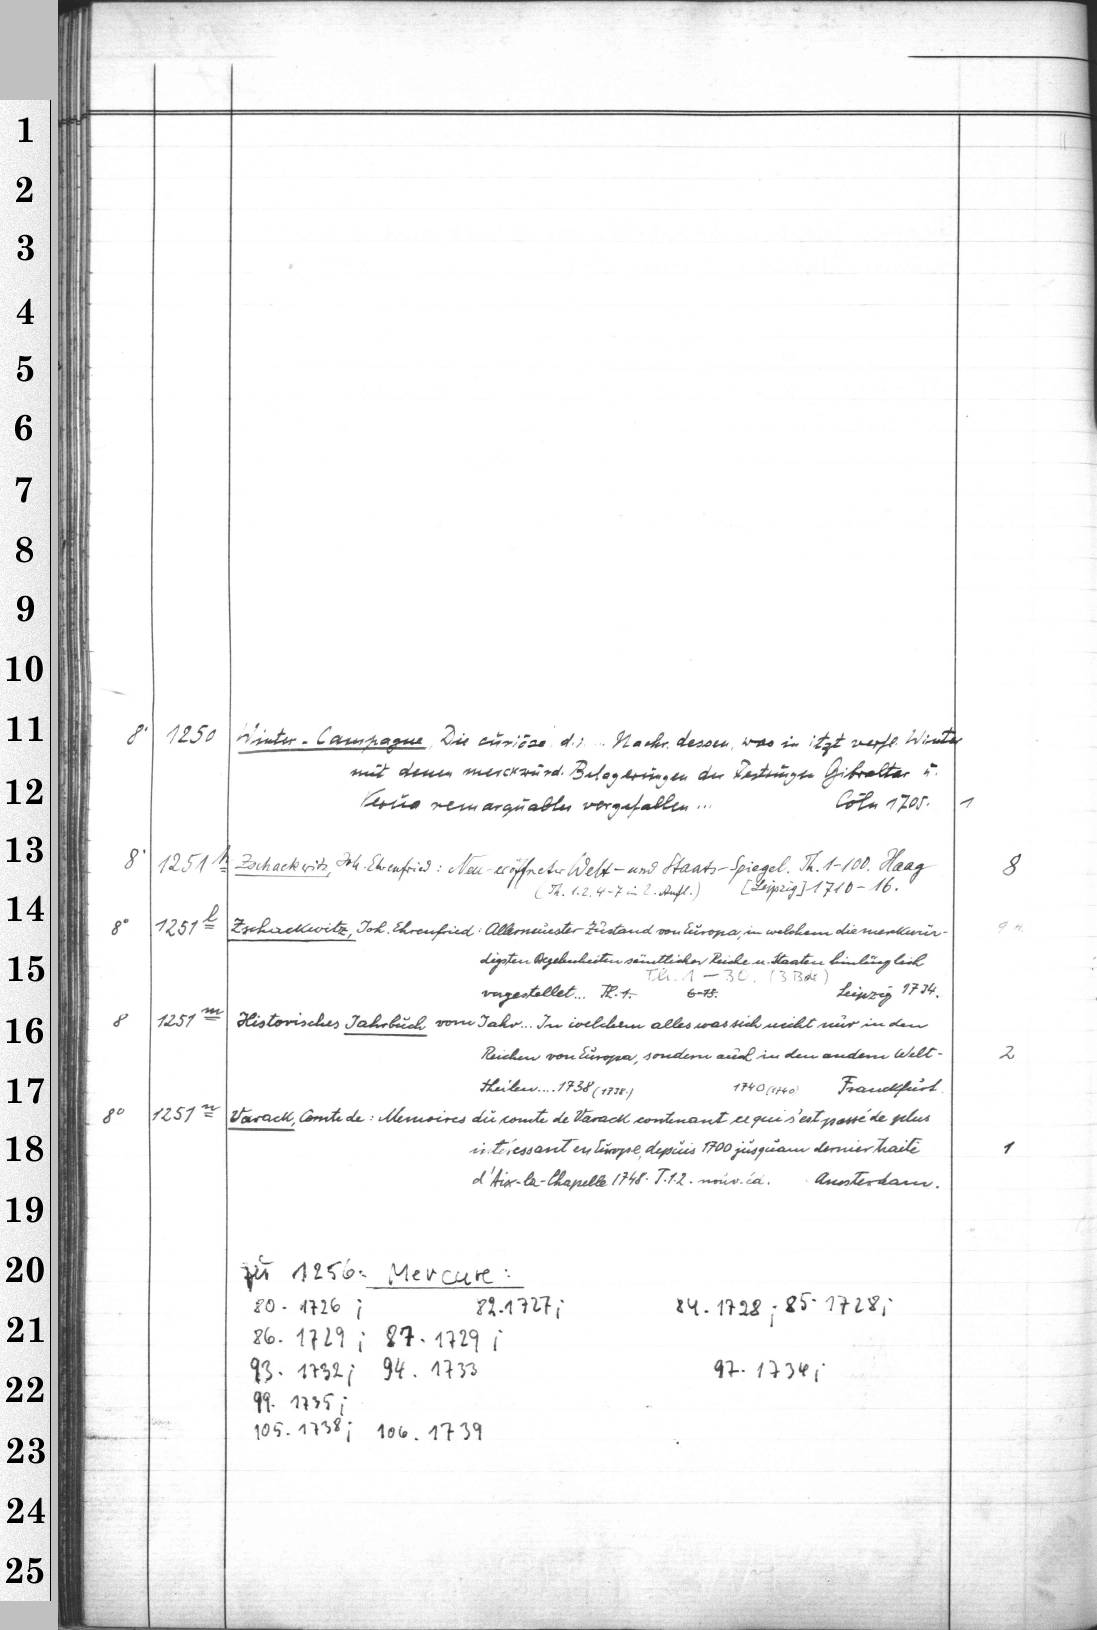 1
2
3
4
5
6
7
8
9
10
11
12
13
14
15
16
17
18
19
20
21
22
23
24
25
8° 1250 Winter-Campagne, Die curiöse, d. i. ... Nachr. dessen, was in itzt verfl. Winter
mit denen merckwürd. Belagerungen der Festungen Gibraltar u.
Verüa remarquables vorgefallen ... Cöln 1705. 1
8° 1251 k Zschackwitz, Joh. Ehrenfried: Neu-eröffneter Welt- und Staats-Spiegel. Th. 1-100. Haag 8
(Th. 1. 2. 4-7 in 2. Aufl.) [Leipzig] 1710-16.
8° 1251 l Zschackwitz, Joh. Ehrenfried: Allerneuester Zustand von Europa, in welchem die merckwür-
digsten Begebenheiten sämtlicher Reiche u. Staaten hinlänglich
Th. 1-30. (3 Bde)
vorgestellet... Th. 1.- 6-15. Leipzig 1734.
8 1251 m Historisches Jahrbuch vom Jahr... In welchem alles was sich nicht nur in den
Reichen von Europa, sondern auch in den andern Welt- 2
theilen.... 1738 (1738.) 1740 (1740) Franckfurt.
8° 1251 n Varack, Comte de: Memoires du comte de Varack contenant ce qui s'est passé de plus
intéressant en Europe, depuis 1700 jusqu'au dernier traité 1
d'Aix-la-Chapelle 1748. T. 1.2. nouv. éd. Amsterdam.
zu 1256: Mercure:
80. 1726; 82. 1727; 84. 1728; 85. 1728;
86. 1729; 87. 1729;
93. 1732; 94. 1733 97. 1734;
99. 1735;
105. 1738; 106. 1739